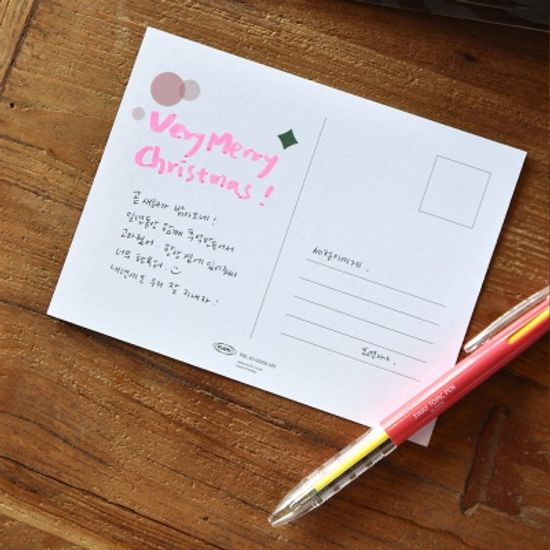 Very Merry
Christmas!
곧 새해가 밝아오네!
일년동안 함께 추억 만들어서
고마웠어. 항상 곁에 있어줘서
너무 행복해.
내년에도 우리 잘 지내자!
세정이에게.
FEEL SO GOOD LIFE
3WAY TOPIC PEN